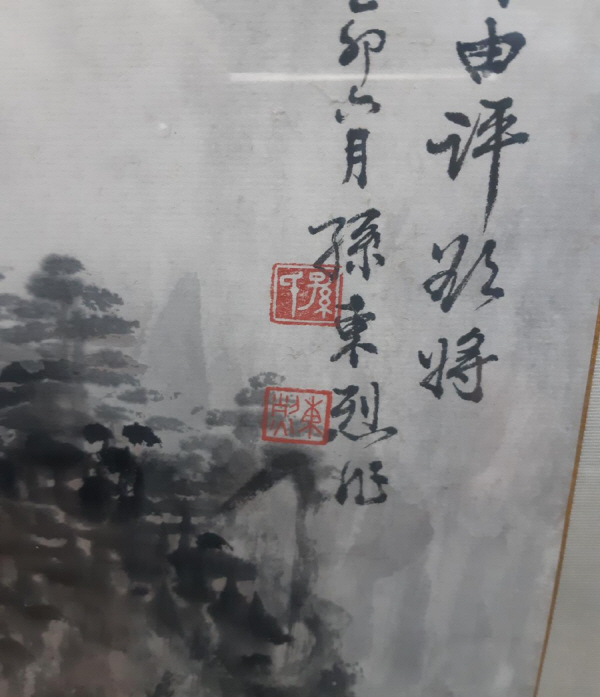 由评
将
卯六月孫東烈作
孫印
東烈